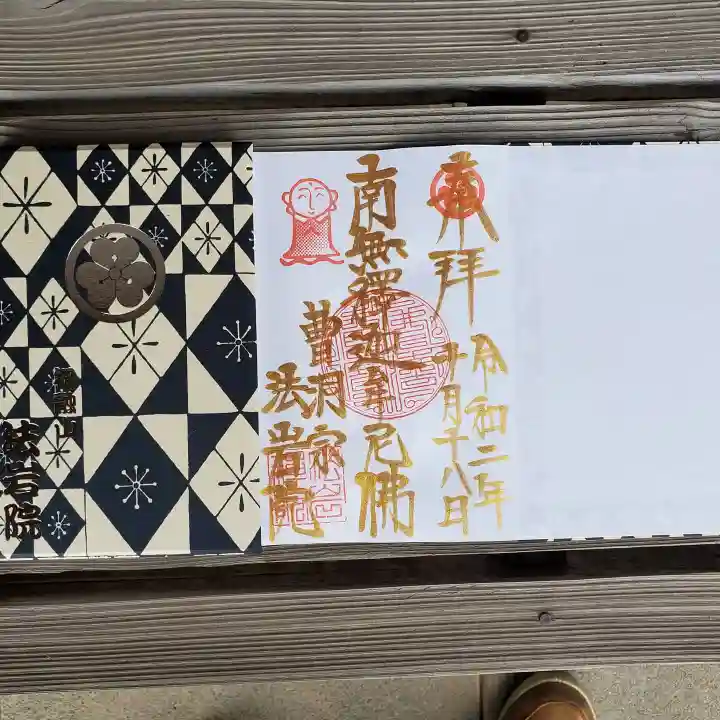 奉拝
令和二年
十月十八日
南無釋迦牟尼佛
曹洞宗
法岩院
法岩院